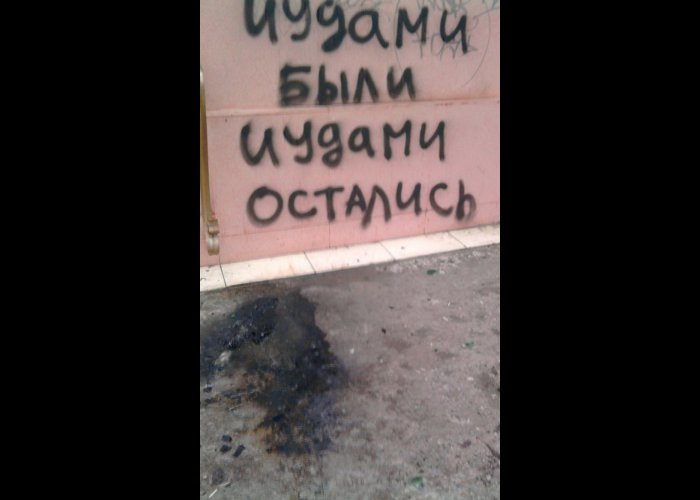 иудами
были
иудами
остались